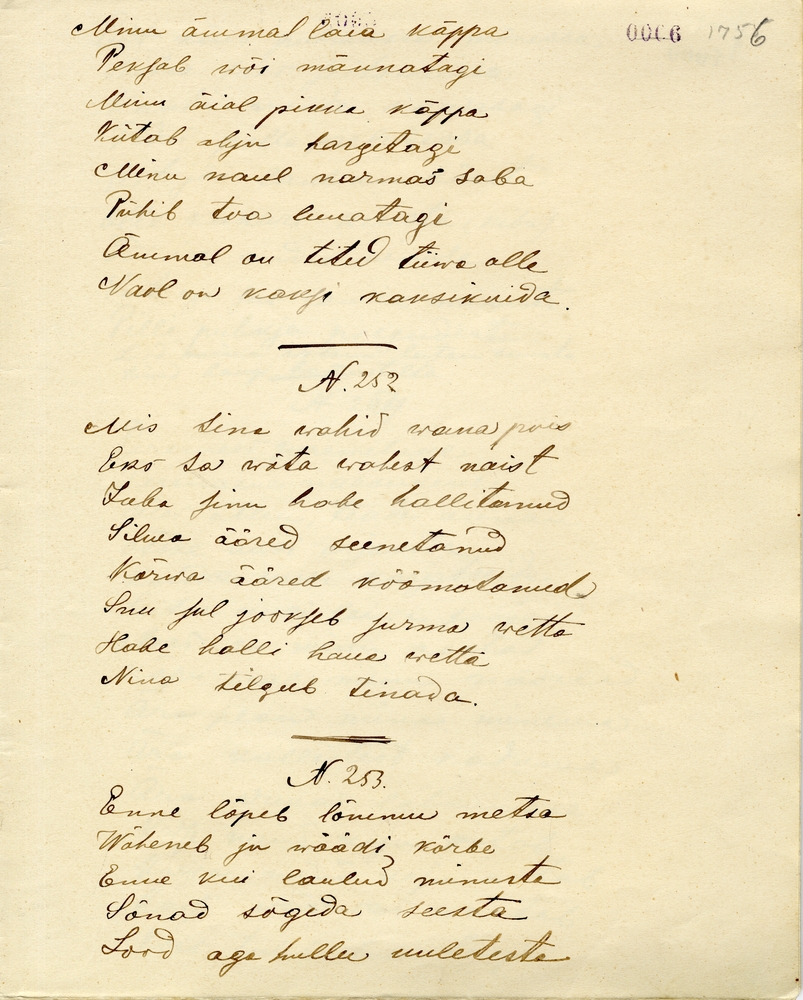 0006 1756
Minu ämmal laia käppa
Peksab wõi männatagi
Minu äial pikka käppa
Kütab ahju hargitagi
Minu naul narmas saba
Pühib toa luuatagi
Ämmal on tited tiiwa alle
Naol on kaksi kaksikuida.
N. 252
Mis sina wahid wana pois
Eks sa wõta wahest naist
Juba sinu habe hallitanud
Silma ääred seenetanud
Kõrwa ääred köömatanud
Suu sul jookseb surma wetta
Habe halli haua wetta
Nina tilgub tinada.
N. 253.
Enne lõpeb lõmmu metsa
Wäheneb ju wäädi kõrbe
Enne kui laulud minusta
Sõnad sõgeda seesta
Lood aga hullu uuletesta